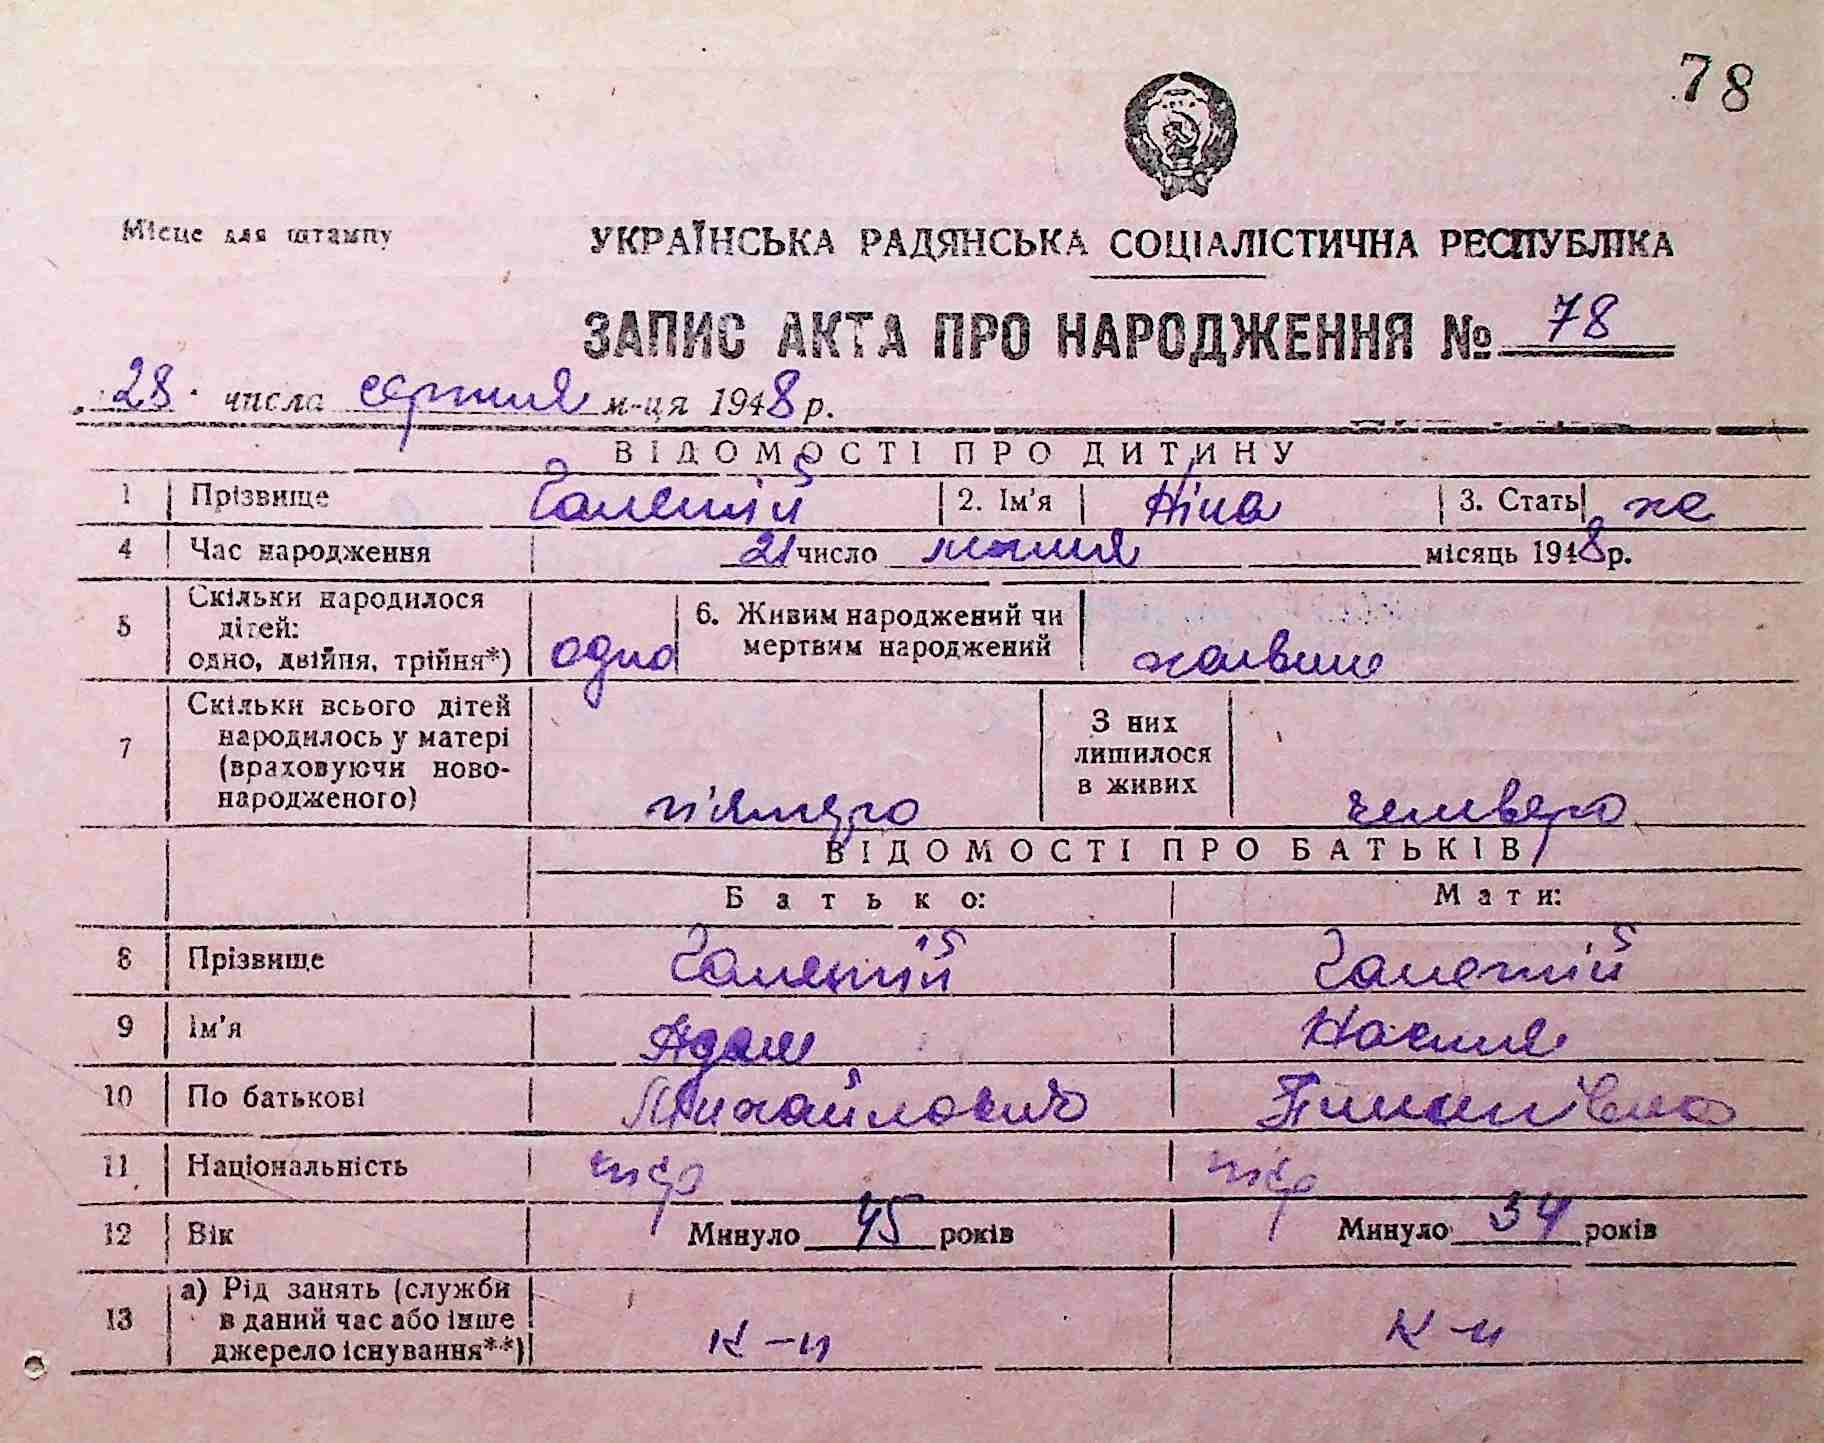 78
Місце для штампу
УКРАЇНСЬКА РАДЯНСЬКА СОЦІАЛІСТИЧНА РЕСПУБЛІКА
ЗАПИС АКТА ПРО НАРОДЖЕННЯ № 78
28 числа серпня м-ця 1948 р.
ВІДОМОСТІ ПРО ДИТИНУ
1 Прізвище 2. Ім'я Ніна 3. Стать же
4 Час народження 21 число місяць 1948 р.
5 Скільки народилося дітей: одно, двійня, трійня*) одно 6. Живим народжений чи мертвим народжений живим
7 Скільки всього дітей народилось у матері (враховуючи новонародженого) п'ятеро З них лишилося в живих четверо
ВІДОМОСТІ ПРО БАТЬКІВ
Батько: Мати:
8 Прізвище
9 Ім'я Адам Настя
10 По батькові Михайлович
11 Національність укр укр
12 Вік Минуло 45 років Минуло 34 років
13 а) Рід занять (служби в даний час або інше джерело існування**) к-к к-к